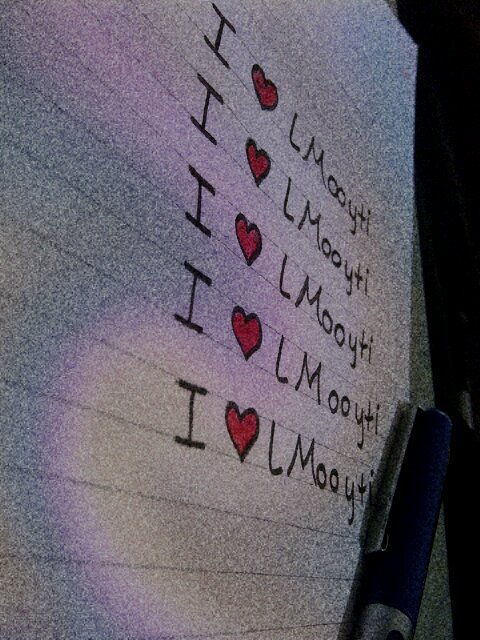 I ❤ LMooyti
I ❤ LMooyti
I ❤ LMooyti
I ❤ LMooyti
I ❤ LMooyti